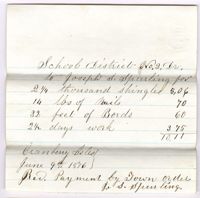 School District No 2, Dr.
To Joseph S. Sperling for
2¼ thousand shingles 5,06
14 lbs of nails 70
33 feet of Bords 60
2½ days work 3 75
10.11
June 9th 1876
Rec. Payment by Town order
J. S. Sperling.